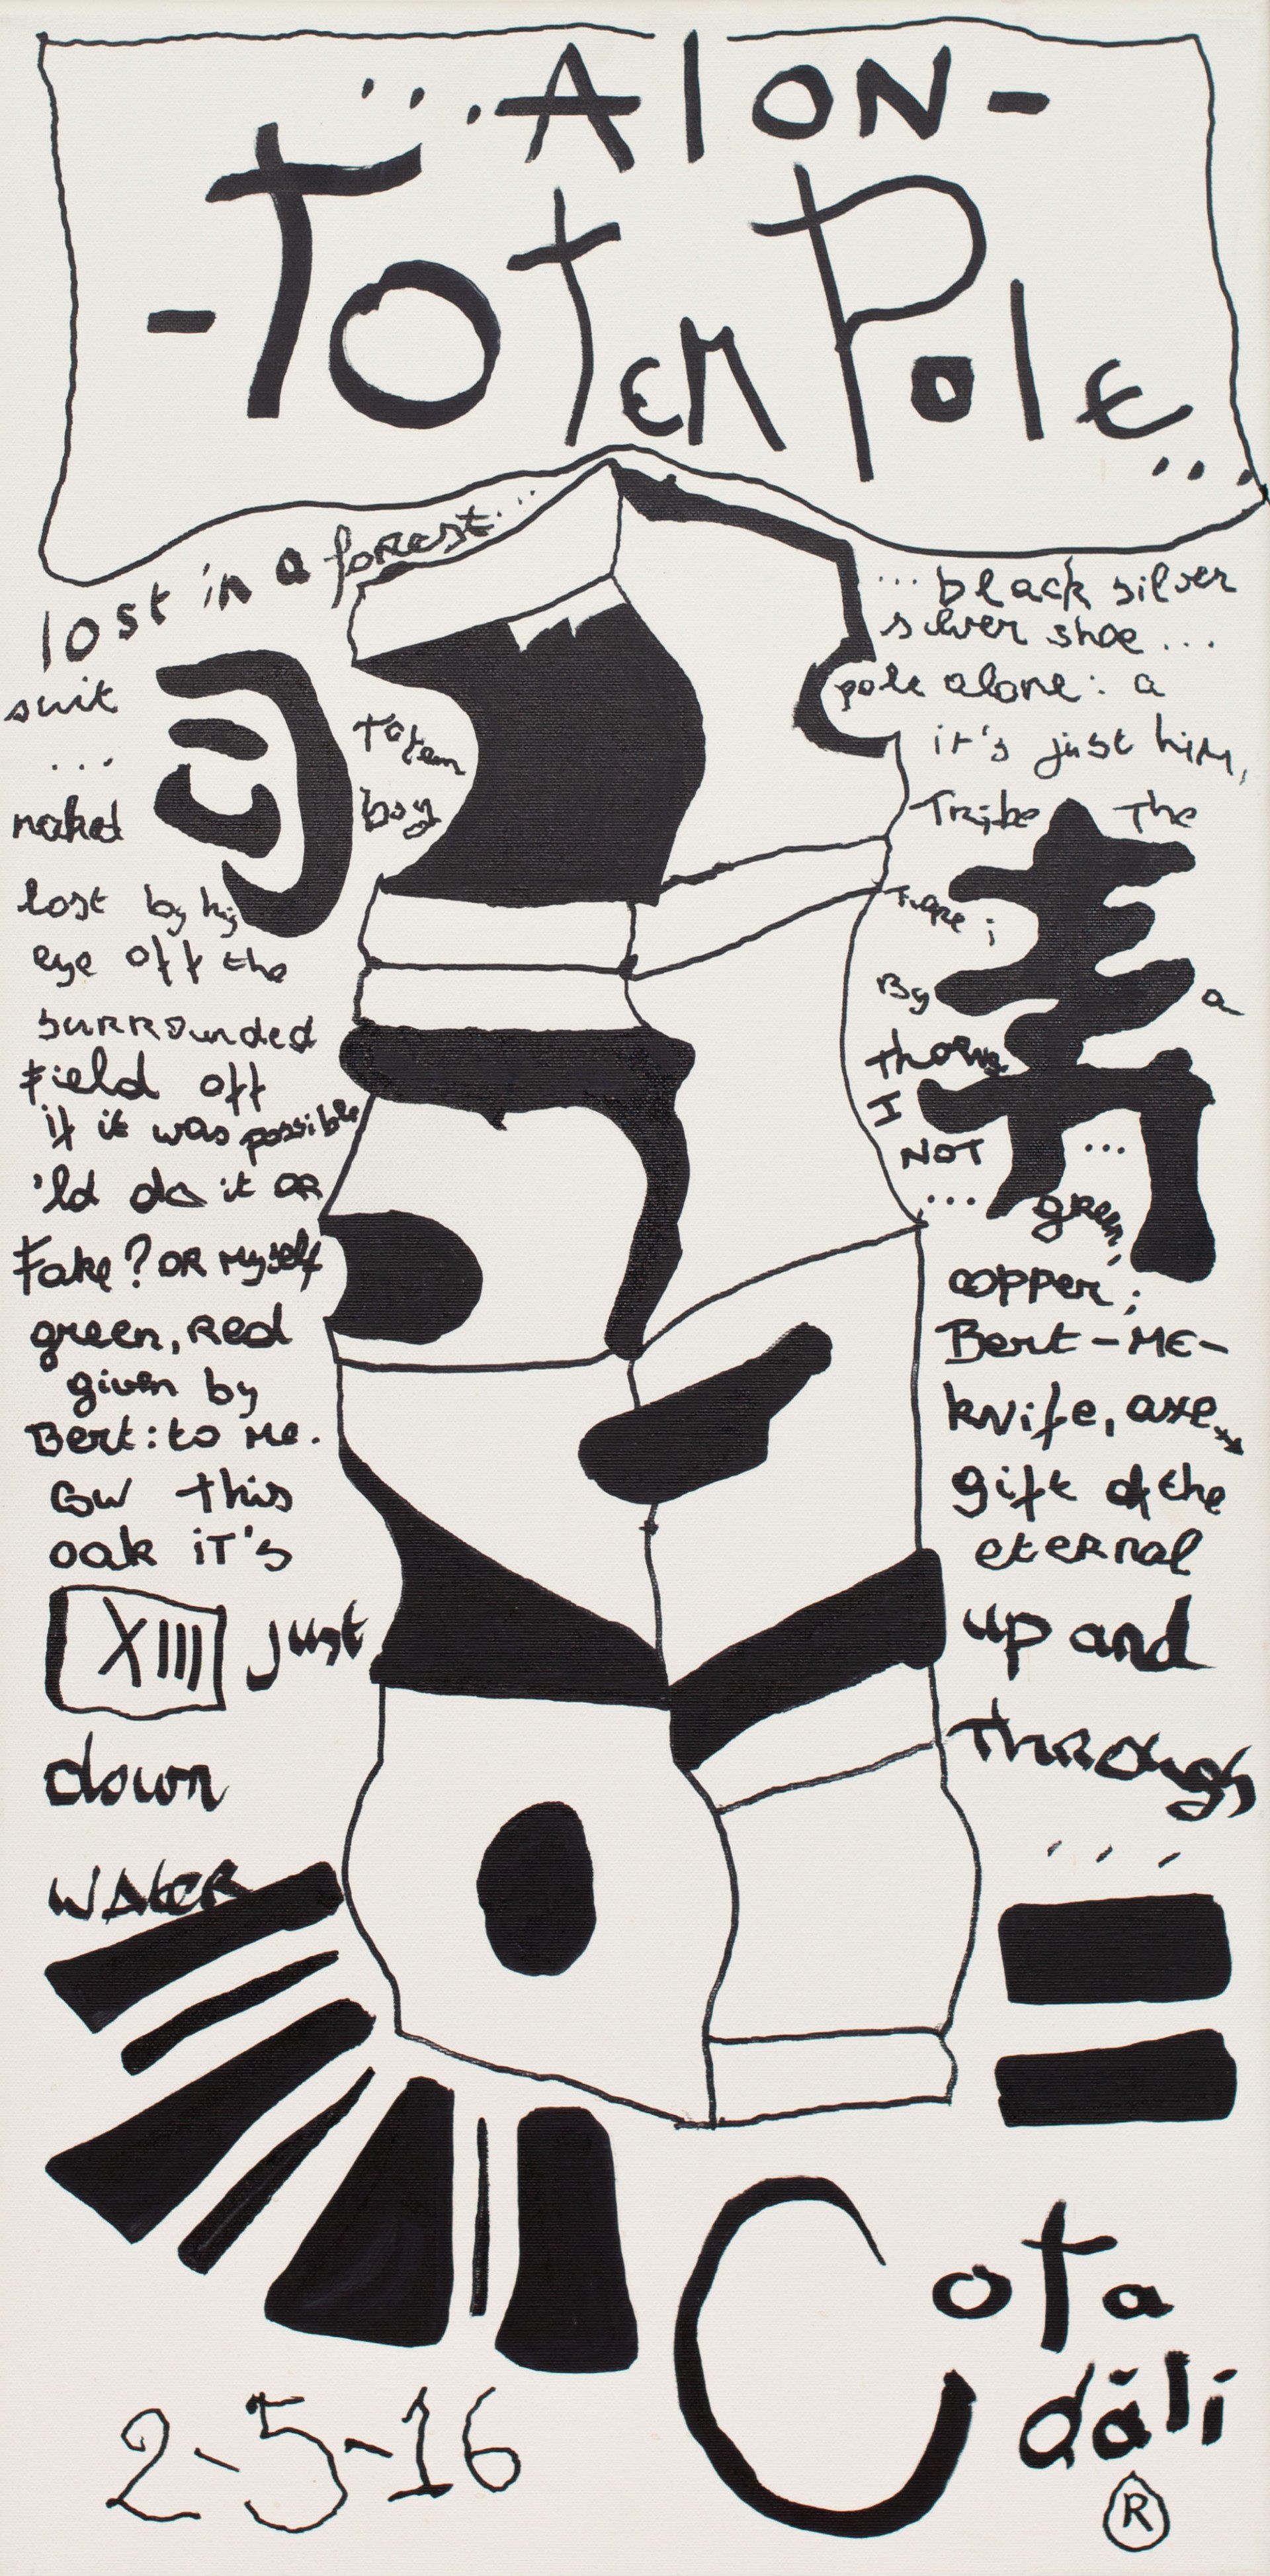 ...AlON-
-TOTEM POlE...
lost in a forest...
...black silver
suit
silver shoe...
...
Totem
pole alone: a
naked
boy
it's just him,
lost by his
Tribe The
eye off the
surrounded
By
a
Field off
thorns
if it was possible
I
'ld do it OR
NOT ...
Fake? OR Myself
... green,
green, Red
copper;
given by
Bert-ME-
Bert: to Me.
knife, axe
this
gift of the
oak iT's
eteRnal
XIII just
up and
down
ThRough
WAteR
...
2-5-16
Cota
dali
®